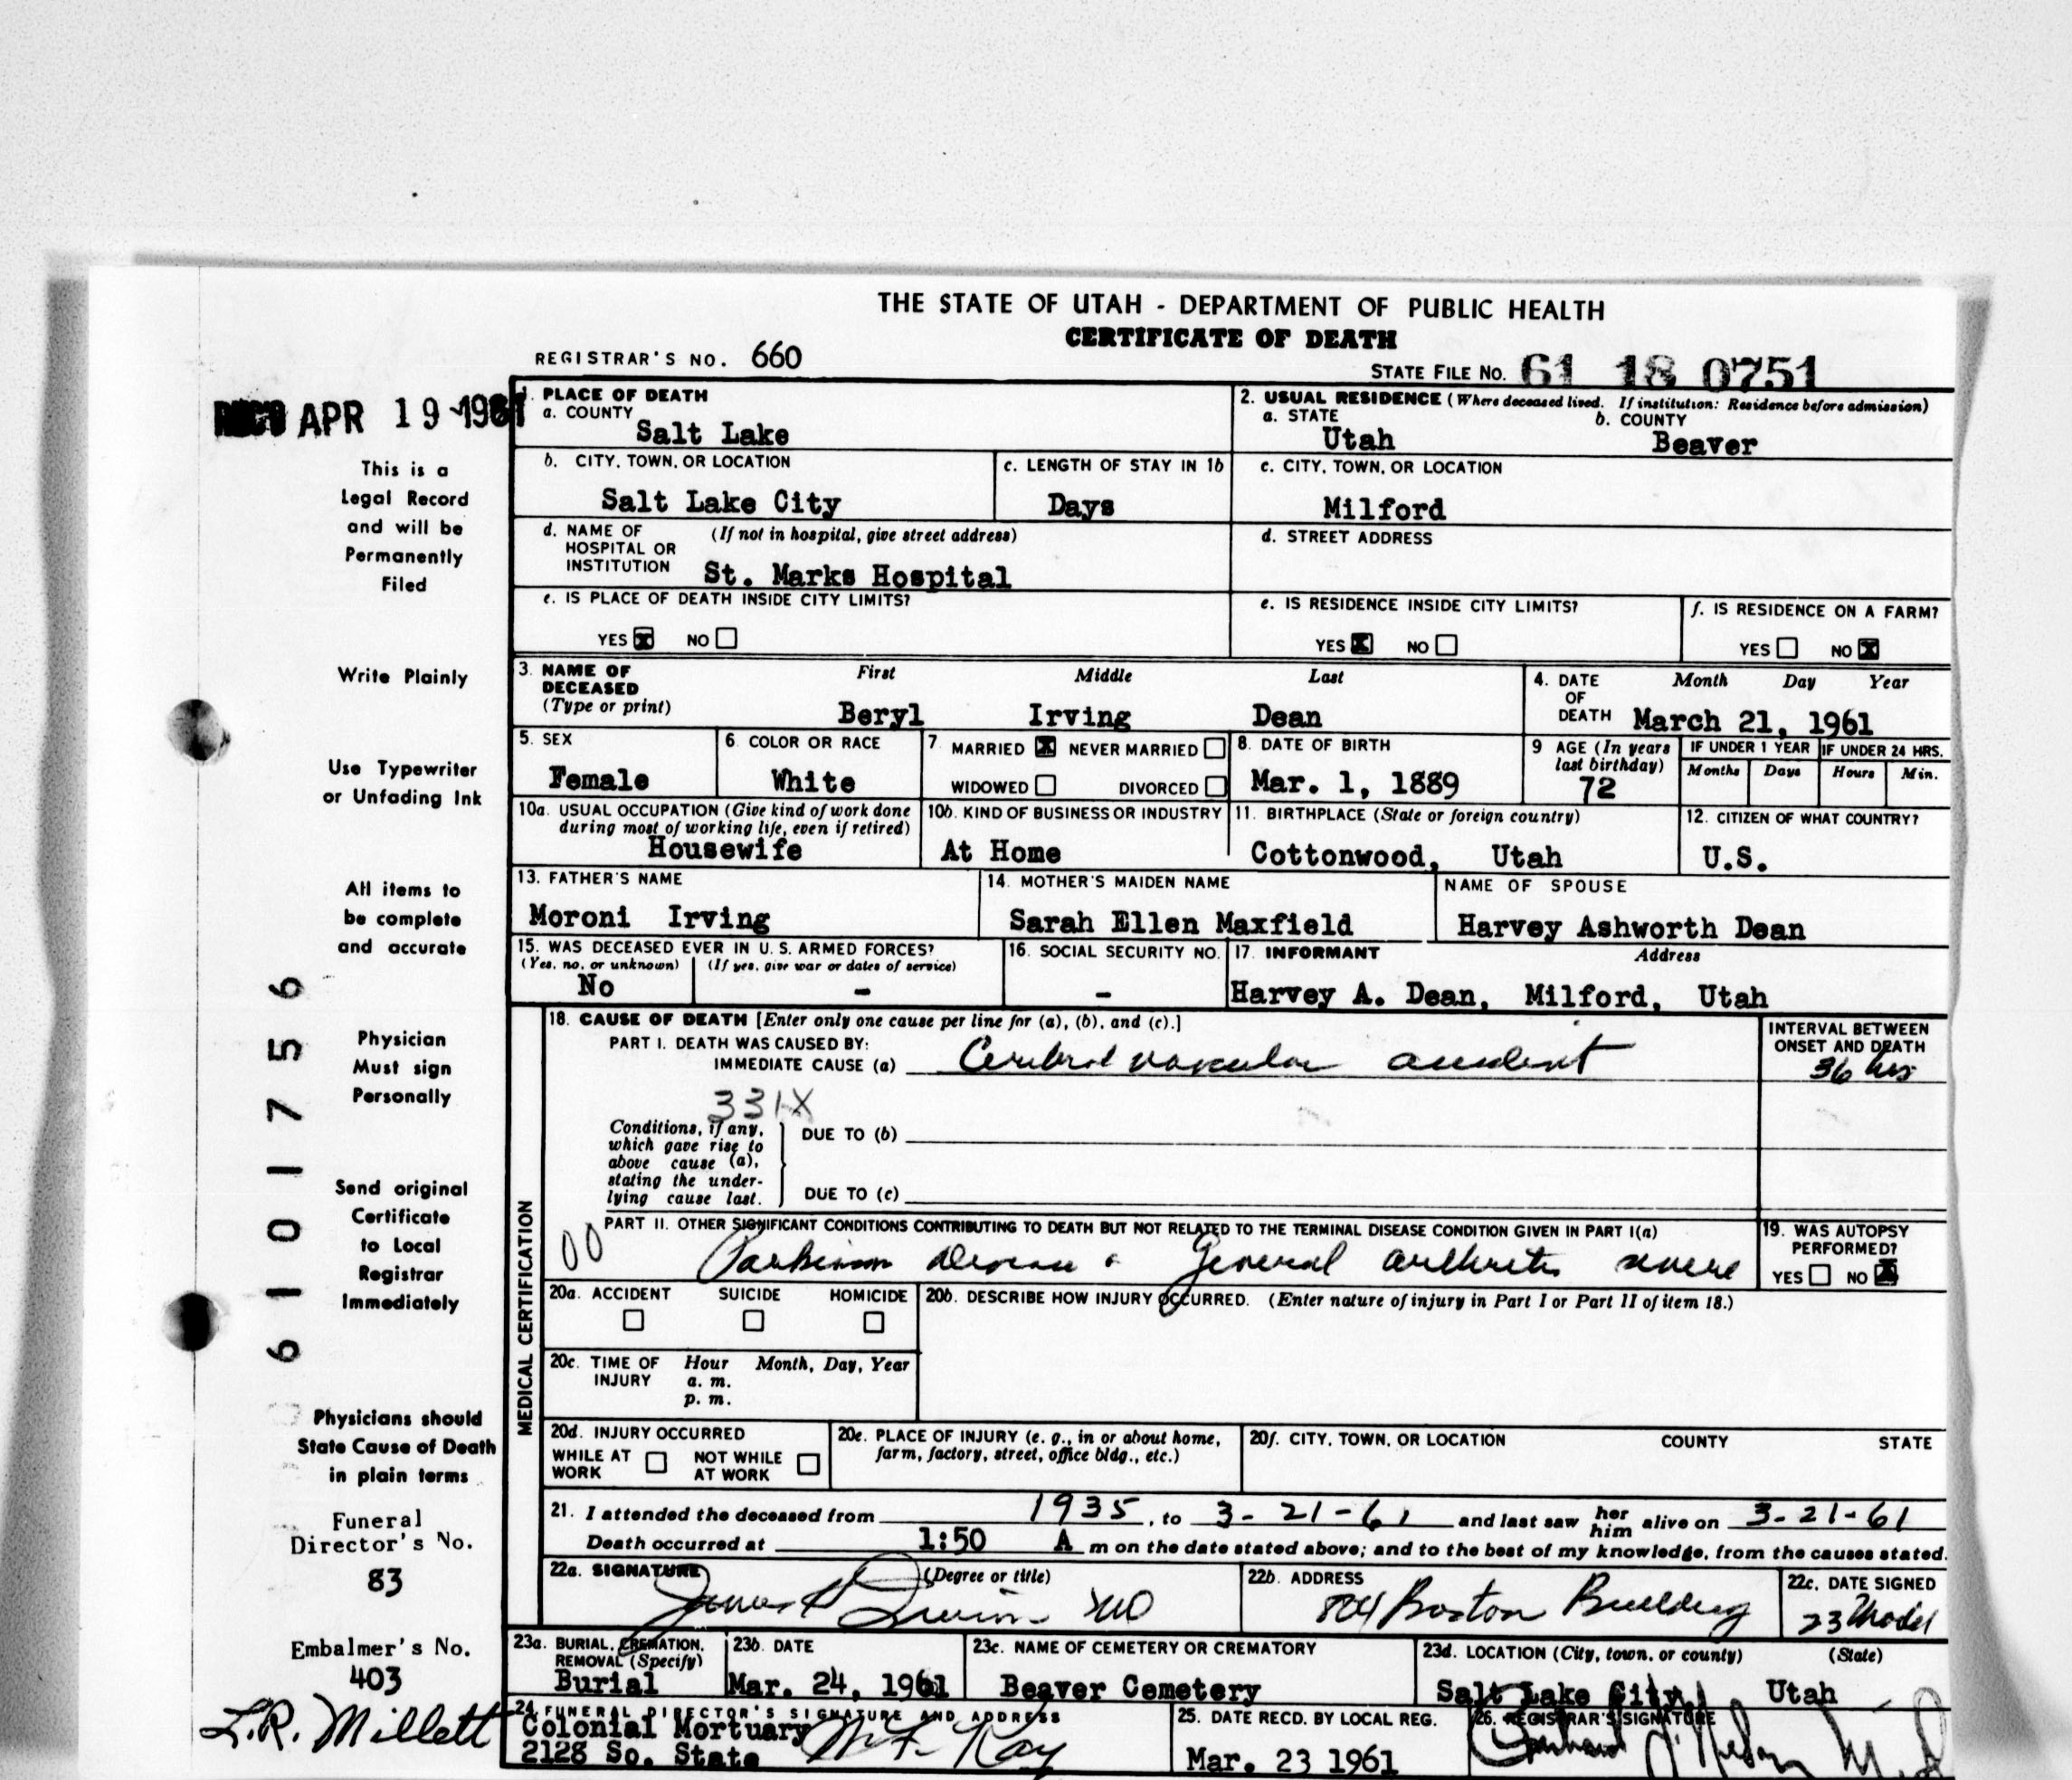 THE STATE OF UTAH - DEPARTMENT OF PUBLIC HEALTH
CERTIFICATE OF DEATH
REGISTRAR'S NO. 660
STATE FILE NO. 61 18 0751
APR 19 1961
1. PLACE OF DEATH
a. COUNTY
Salt Lake
2. USUAL RESIDENCE (Where deceased lived. If institution: Residence before admission)
a. STATE b. COUNTY
Utah Beaver
b. CITY, TOWN, OR LOCATION
Salt Lake City
c. LENGTH OF STAY IN 1b
Days
c. CITY, TOWN, OR LOCATION
Milford
d. NAME OF (If not in hospital, give street address)
HOSPITAL OR
INSTITUTION St. Marks Hospital
d. STREET ADDRESS
e. IS PLACE OF DEATH INSIDE CITY LIMITS?
YES X NO
e. IS RESIDENCE INSIDE CITY LIMITS?
YES X NO
f. IS RESIDENCE ON A FARM?
YES NO X
3. NAME OF DECEASED (Type or print)
First Middle Last
Beryl Irving Dean
4. DATE OF DEATH
Month Day Year
March 21, 1961
5. SEX
Female
6. COLOR OR RACE
White
7. MARRIED X NEVER MARRIED
WIDOWED DIVORCED
8. DATE OF BIRTH
Mar. 1, 1889
9 AGE (In years last birthday)
72
IF UNDER 1 YEAR IF UNDER 24 HRS.
Months Days Hours Min.
10a. USUAL OCCUPATION (Give kind of work done
during most of working life, even if retired)
Housewife
10b. KIND OF BUSINESS OR INDUSTRY
At Home
11. BIRTHPLACE (State or foreign country)
Cottonwood, Utah
12. CITIZEN OF WHAT COUNTRY?
U.S.
13. FATHER'S NAME
Moroni Irving
14. MOTHER'S MAIDEN NAME
Sarah Ellen Maxfield
NAME OF SPOUSE
Harvey Ashworth Dean
15. WAS DECEASED EVER IN U.S. ARMED FORCES?
(Yes, no, or unknown) (If yes, give war or dates of service)
No -
16. SOCIAL SECURITY NO.
-
17. INFORMANT Address
Harvey A. Dean, Milford, Utah
MEDICAL CERTIFICATION
18. CAUSE OF DEATH [Enter only one cause per line for (a), (b), and (c).]
PART I. DEATH WAS CAUSED BY:
IMMEDIATE CAUSE (a) Cerebral vascular accident
INTERVAL BETWEEN
ONSET AND DEATH
36 hrs
331X
Conditions, if any,
which gave rise to
above cause (a),
stating the under-
lying cause last.
DUE TO (b)
DUE TO (c)
PART II. OTHER SIGNIFICANT CONDITIONS CONTRIBUTING TO DEATH BUT NOT RELATED TO THE TERMINAL DISEASE CONDITION GIVEN IN PART I(a)
00 Parkinson Disease General arthritis severe
19. WAS AUTOPSY
PERFORMED?
YES NO X
20a. ACCIDENT SUICIDE HOMICIDE
20b. DESCRIBE HOW INJURY OCCURRED. (Enter nature of injury in Part I or Part II of item 18.)
20c. TIME OF INJURY
Hour Month, Day, Year
a. m.
p. m.
20d. INJURY OCCURRED
WHILE AT WORK NOT WHILE AT WORK
20e. PLACE OF INJURY (e. g., in or about home,
farm, factory, street, office bldg., etc.)
20f. CITY, TOWN, OR LOCATION COUNTY STATE
21. I attended the deceased from 1935, to 3-21-61 and last saw her him alive on 3-21-61
Death occurred at 1:50 A m on the date stated above; and to the best of my knowledge, from the causes stated.
22a. SIGNATURE (Degree or title)
MD
22b. ADDRESS
804 Boston Building
22c. DATE SIGNED
23
23a. BURIAL, CREMATION,
REMOVAL (Specify)
Burial
23b. DATE
Mar. 24, 1961
23c. NAME OF CEMETERY OR CREMATORY
Beaver Cemetery
23d. LOCATION (City, town, or county) (State)
Salt Lake City, Utah
24. FUNERAL DIRECTOR'S SIGNATURE AND ADDRESS
Colonial Mortuary
2128 So. State
25. DATE RECD. BY LOCAL REG.
Mar. 23 1961
26. REGISTRAR'S SIGNATURE
This is a
Legal Record
and will be
Permanently
Filed
Write Plainly
Use Typewriter
or Unfading Ink
All items to
be complete
and accurate
Physician
Must sign
Personally
Send original
Certificate
to Local
Registrar
Immediately
Physicians should
State Cause of Death
in plain terms
Funeral
Director's No.
83
Embalmer's No.
403
L.R. Millett
6101756